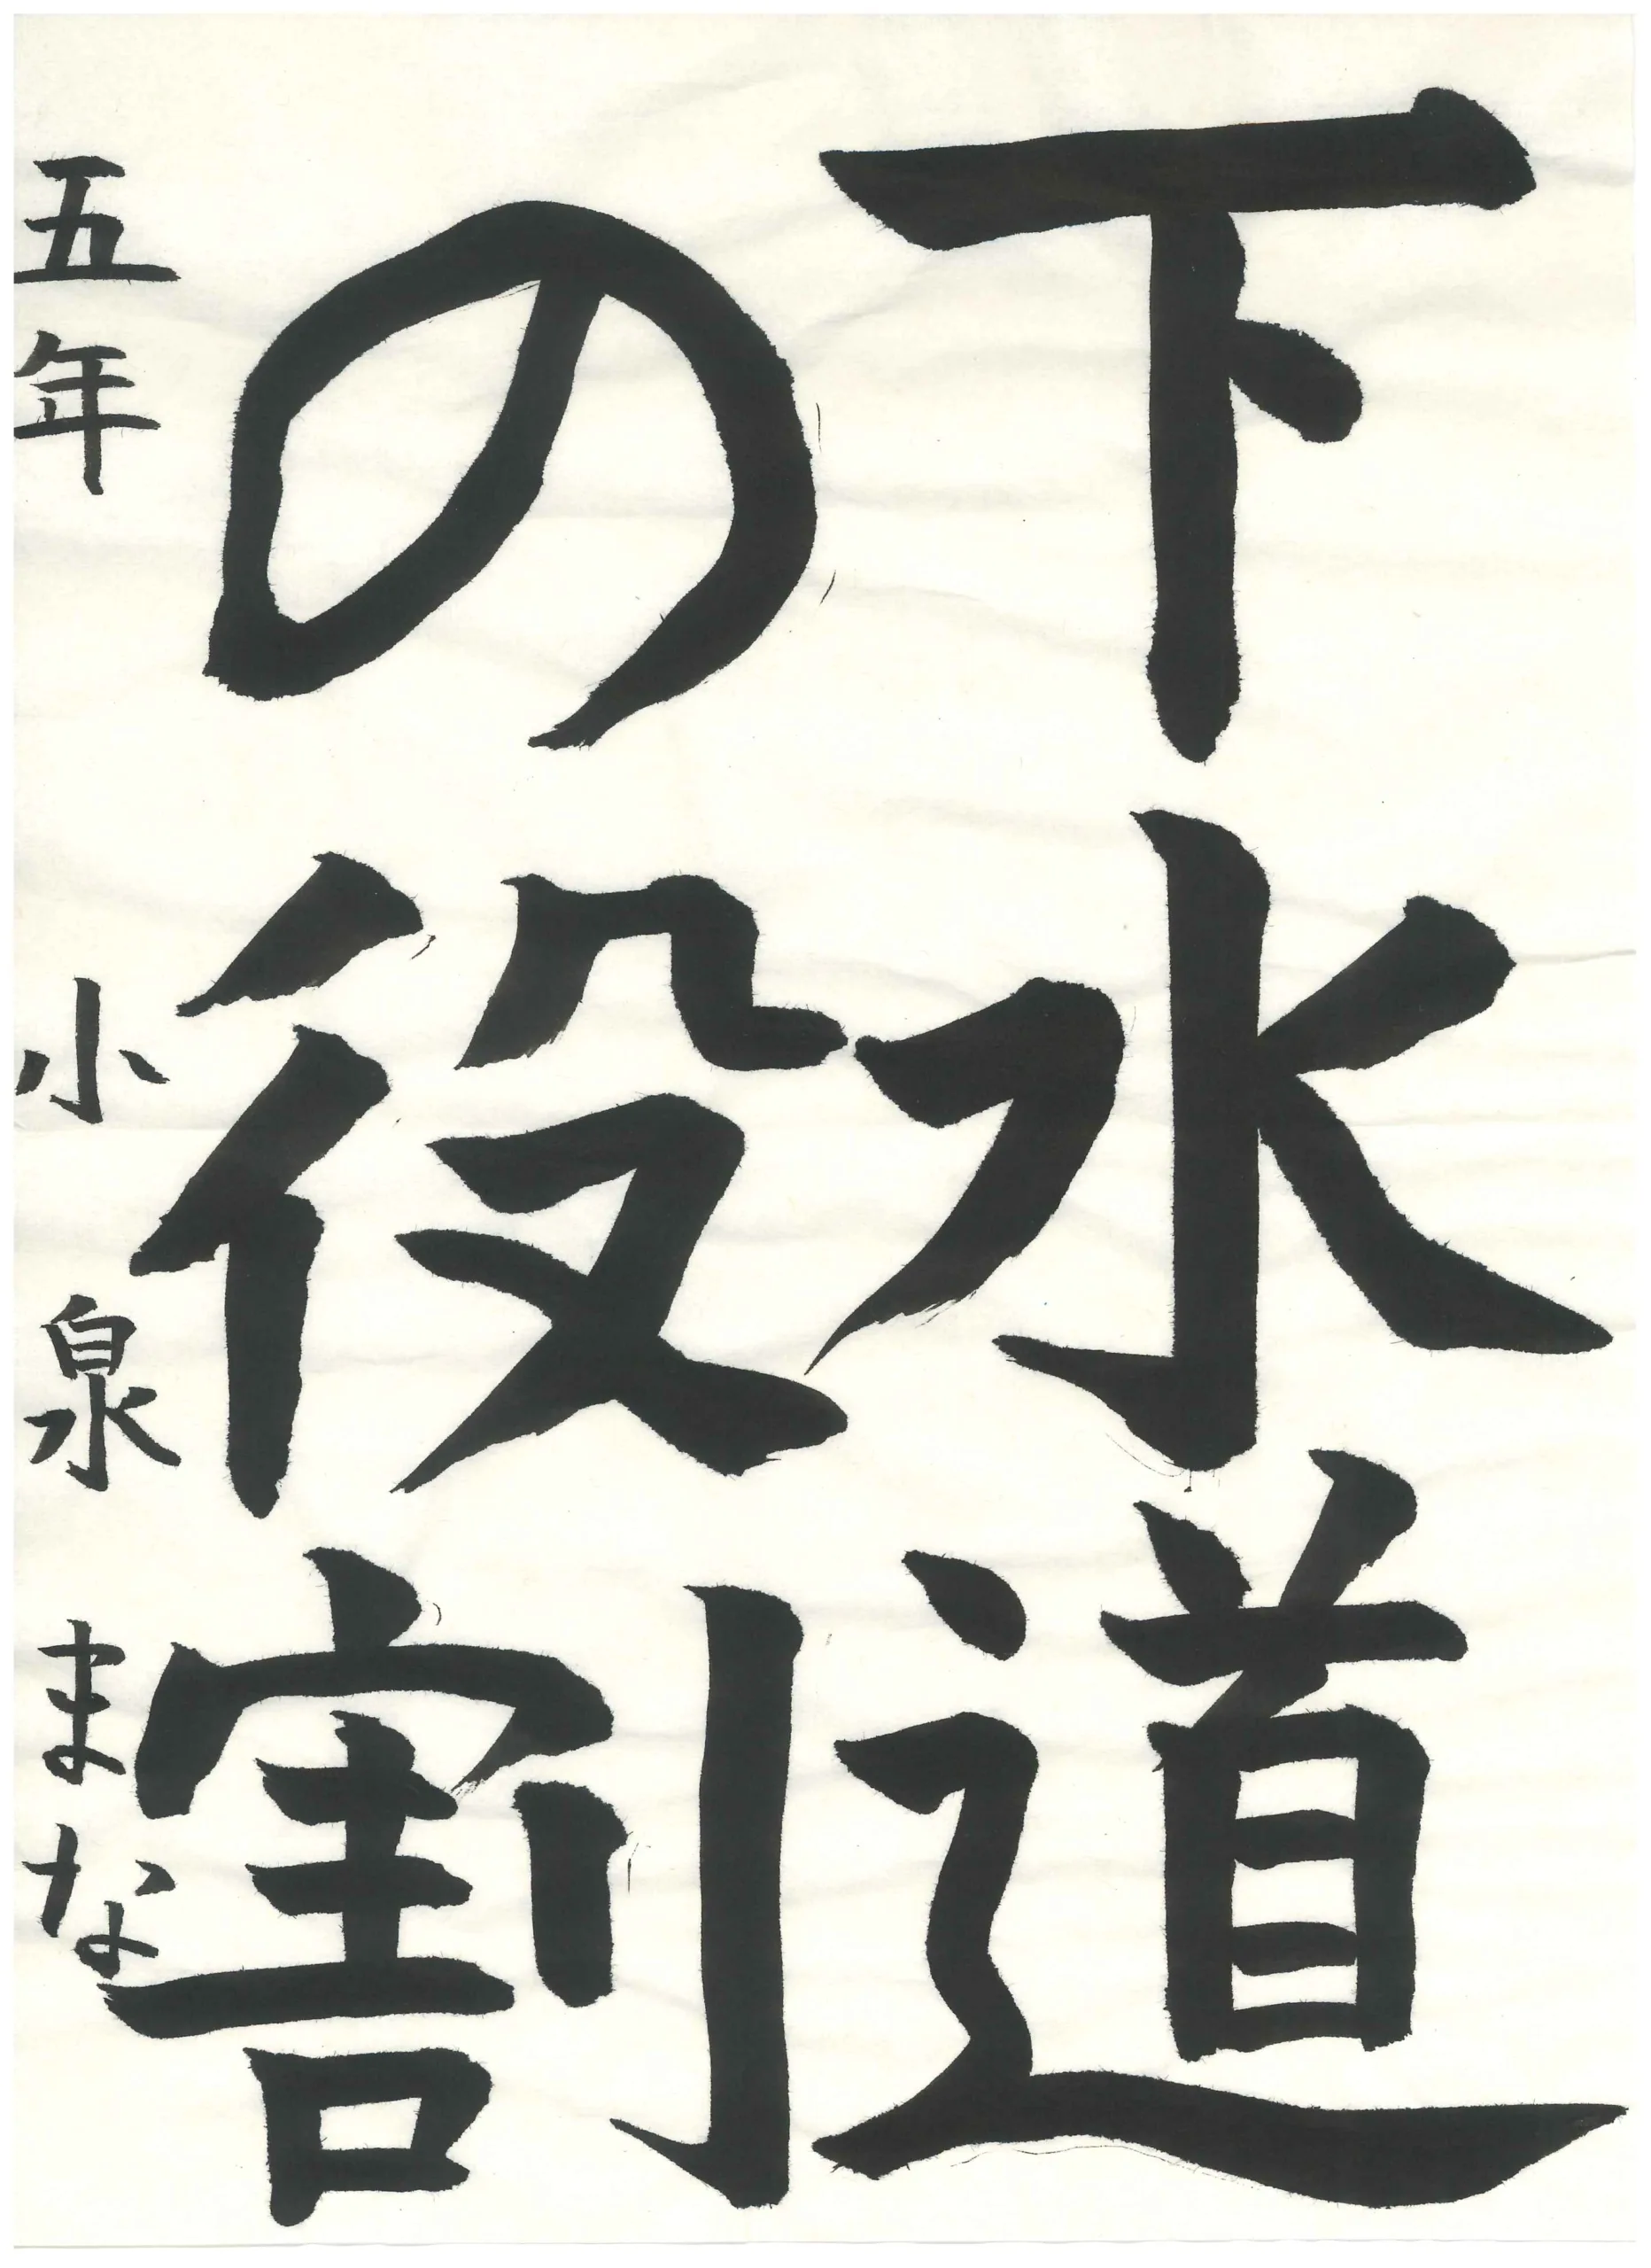 下水道
の役割
五年 小泉まな